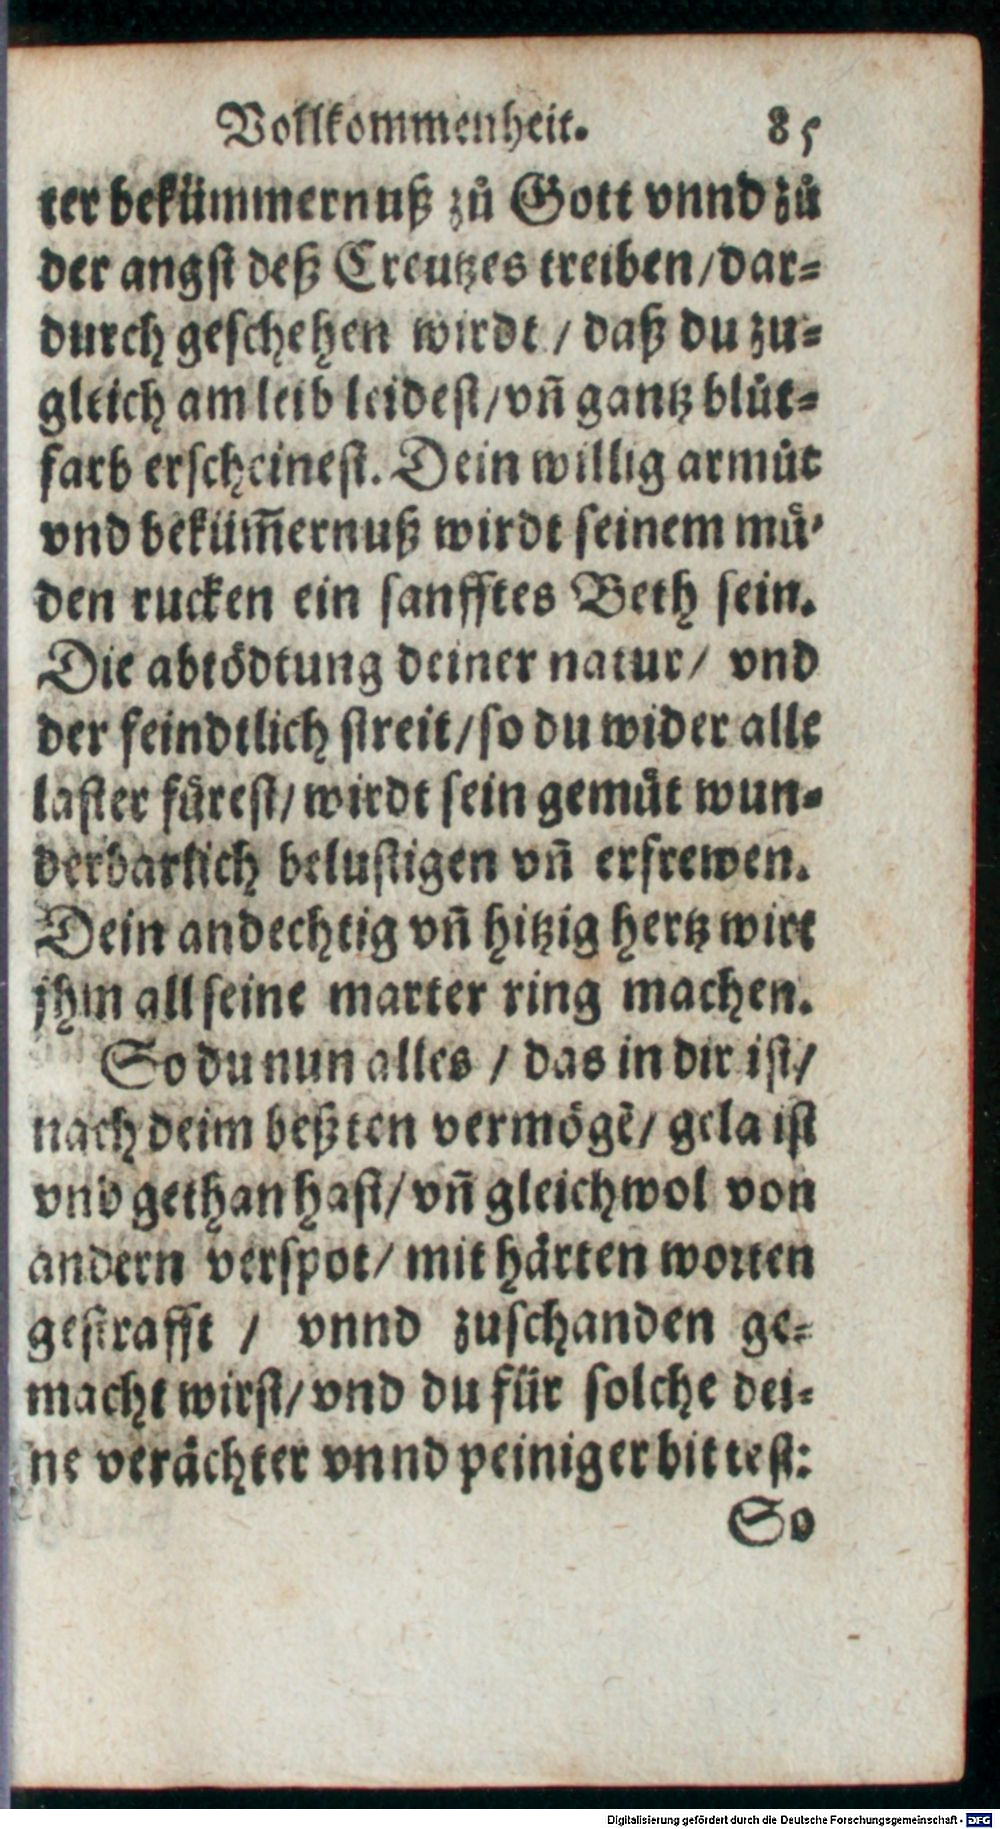 Vollkommenheit. 85
ter bekümmernuß zů Gott vnnd zů
der angst deß Creutzes treiben/dar=
durch geschehen wirdt / daß du zu=
gleich am leib leidest/vñ gantz blůt=
farb erscheinest. Dein willig armůt
vnd beküm̃ernuß wirdt seinem mů=
den rucken ein sanfftes Beth sein.
Die abtödtung deiner natur/ vnd
der feindtlich streit/so du wider alle
laster fůrest/wirdt sein gemůt wun=
derbarlich belustigen vñ erfrewen.
Dein andechtig vñ hitzig hertz wirt
jhm all seine marter ring machen.
So du nun alles / das in dir ist/
nach deim beßten vermögẽ/ gelaist
vnd gethan hast/vñ gleichwol von
andern verspot/ mit härten worten
gestrafft / vnnd zuschanden ge=
macht wirst/vnd du für solche dei=
ne verächter vnnd peiniger bittest:
So
Digitalisierung gefördert durch die Deutsche Forschungsgemeinschaft - DFG